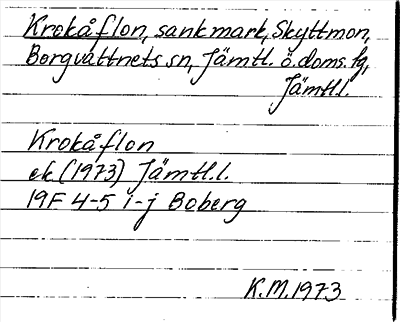 Krokåflon, sankmark, Skyttmon,
Borgvattnets sn, Jämtl. ö. doms. fg,
Jämtl.l.
Krokåflon
ek (1973) Jämtl.l.
19F 4-5 i-j Boberg
K.M.1973